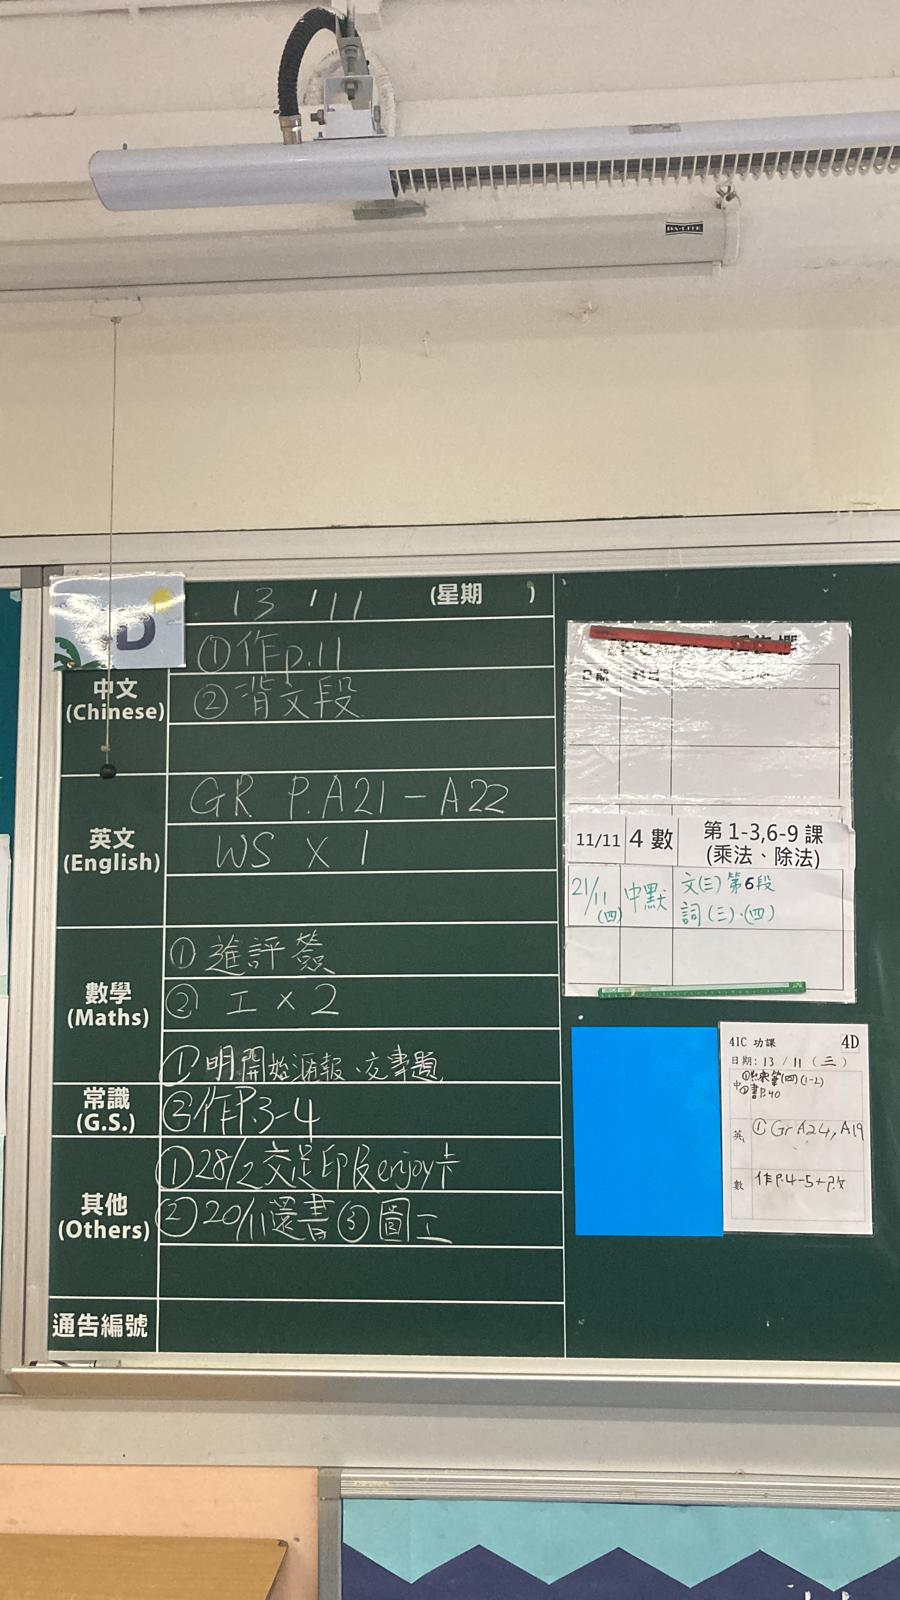 DA-LITE
D
13 / 11 (星期 )
中文
(Chinese)
①作p.11
②背文段
英文
(English)
GR P.A21 - A22
WS X 1
數學
(Maths)
①進評簽
② 工 x 2
常識
(G.S.)
①明開始滙報、交專題
②作P.3-4
其他
(Others)
①28/2交足印及enjoy卡
②20/11還書③圖工
通告編號
日期 科目
11/11 4 數 第 1-3,6-9 課
(乘法、除法)
21/11 (四) 中默 文(三)第6段
詞(三)、(四)
41C 功課 4D
日期: 13 / 11 (三)
中 ① (四)(1-2)
②書P.40
英 ①Gr A24, A19
數 作P.4-5+P.